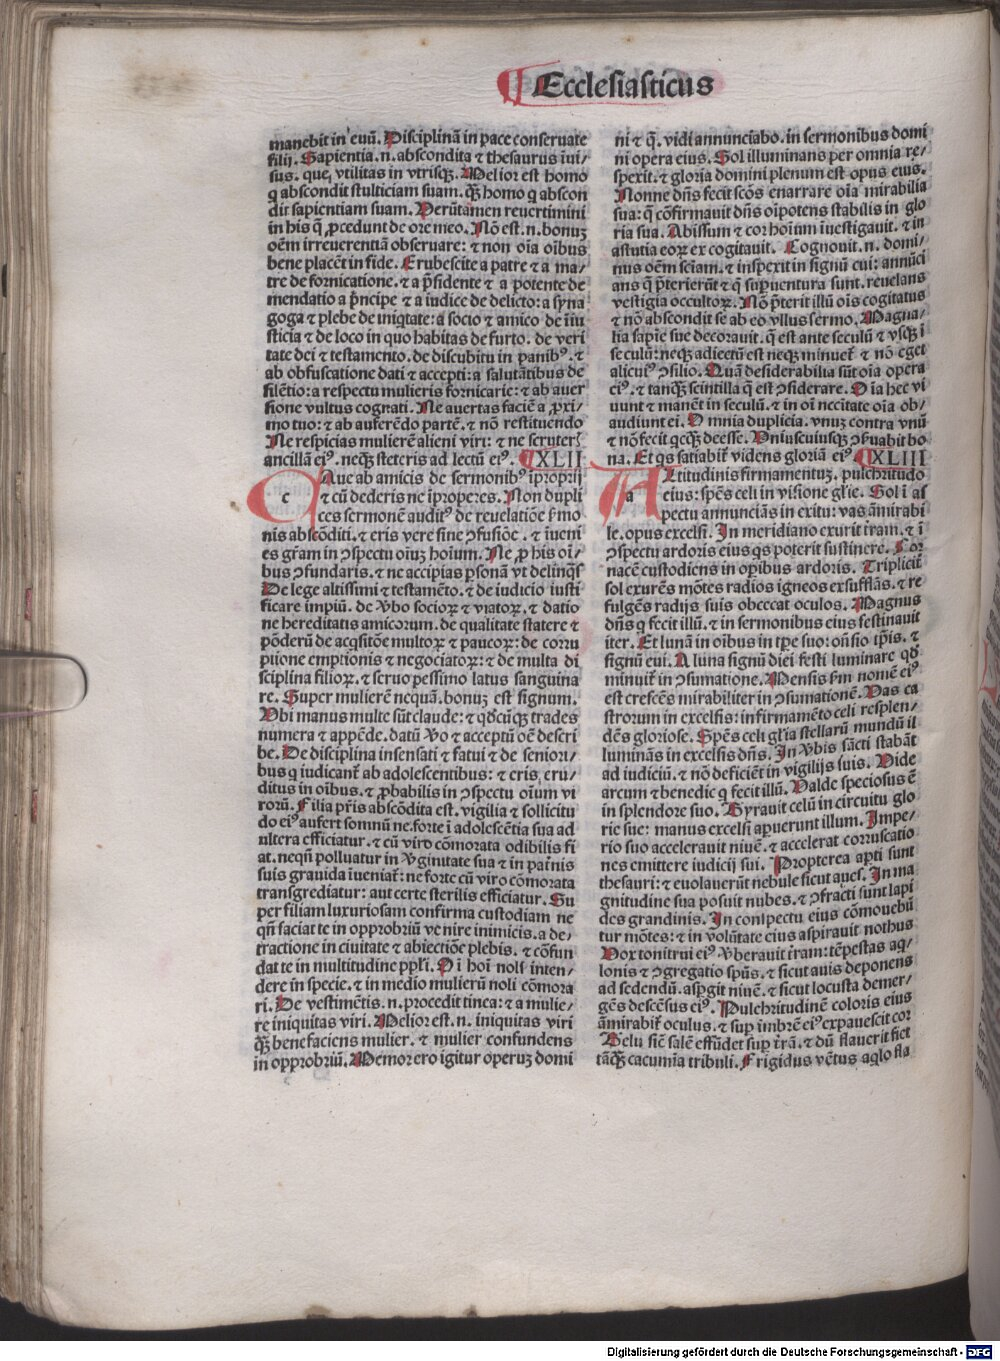 Ecclesiasticus
manebit in euū. Disciplinā in pace conseruate
filij. Sapientia .n. abscondita ⁊ thesaurus īui/
sus. que vtilitas in vtrisqꝫ. Melior est homo
q abscondit stulticiam suam. qꝫ homo q abscon
dit sapientiam suam. Verūtamen reuertimini
in his q̄ ꝓcedunt de ore meo. Nō est .n. bonuꝫ
oēm irreuerentiā obseruare: ⁊ non oīa oībus
bene placēt in fide. Erubescite a patre ⁊ a ma/
tre de fornicatione. ⁊ a p̄sidente ⁊ a potente de
mendatio a p̄ncipe ⁊ a iudice de delicto: a syna
goga ⁊ plebe de iniqtate: a socio ⁊ amico de īiu
sticia ⁊ de loco in quo habitas de furto. de veri
tate dei ⁊ testamento. de discubitu in panibꝰ. ⁊
ab obfuscatione dati ⁊ accepti: a salutātibus de
silētio: a respectu mulieris fornicarie: ⁊ ab auer
sione vultus cognati. Ne auertas faciē a ꝓxi/
mo tuo: ⁊ ab auferēdo partē. ⁊ nō restituendo
Ne respicias mulierē alieni viri: ⁊ ne scruteris
ancillā eiꝰ. neqꝫ steteris ad lectū eiꝰ. XLII
c Aue ab amicis de sermonibꝰ īproprij
⁊ cū dederis ne īproperes. Non dupli
ces sermonē auditꝰ de reuelatiōe s̄mo
nis abscōditi. ⁊ eris vere sine ꝯfusiōe. ⁊ īueni
es gr̄am in ꝯspectu oīuꝫ hoīum. Ne ꝓ his oī/
bus ꝯfundaris. ⁊ ne accipias ꝑsonā vt delinqs
De lege altissimi ⁊ testamēto. ⁊ de iudicio iusti
ficare impiū. de v̄bo socioꝝ ⁊ viatoꝝ. ⁊ datio
ne hereditatis amicorum. de qualitate statere ⁊
pōderū de acqsitōe multoꝝ ⁊ paucoꝝ: de corru
ptione emptionis ⁊ negociatoꝝ: ⁊ de multa di
sciplina filioꝝ. ⁊ seruo pessimo latus sanguina
re. Super mulierē nequā. bonuꝫ est signum.
Vbi manus multe sūt claude: ⁊ qdcūqꝫ trades
numera ⁊ appēde. datū v̄o ⁊ acceptū oē descri
be. De disciplina insensati ⁊ fatui ⁊ de seniori/
bus q iudicant̄ ab adolescentibus: ⁊ eris eru/
ditus in oībus. ⁊ ꝓbabilis in ꝯspectu oīum vi
rorū. Filia pr̄is abscōdita est. vigilia ⁊ sollicitu
do eiꝰ aufert somnū ne forte ī adolescētia sua ad
ultera efficiatur. ⁊ cū viro cōmorata odibilis fi
at. neqn̄ polluatur in v̄ginitate sua ⁊ in pat̄nis
suis grauida īueniat̄: ne forte cū viro cōmorata
transgrediatur: aut certe sterilis efficiatur. Su
per filiam luxuriosam confirma custodiam ne
qn̄ faciat te in opprobriū ve nire inimicis. a de/
tractione in ciuitate ⁊ abiectiōe plebis. ⁊ cōfun
dat te in multitudine ppl̄i. Oī hoī noli inten/
dere in specie. ⁊ in medio mulierū noli cōmora
ri. De vestimētis .n. procedit tinea: ⁊ a mulie/
re iniquitas viri. Melior est .n. iniquitas viri
qꝫ benefaciens mulier. ⁊ mulier confundens
in opprobriū. Memor ero igitur operuꝫ domi
ni ⁊ q̄. vidi annunciabo. in sermonibus domi
ni opera eius. Sol illuminans per omnia re/
spexit. ⁊ gloria domini plenum est opus eius.
Nonne dn̄s fecit scōs enarrare oīa mirabilia
sua: q̄ cōfirmauit dn̄s oīpotens stabilis in glo
ria sua. Abissum ⁊ cor hoīum īuestigauit. ⁊ in
astutia eoꝝ ex cogitauit. Cognouit .n. domi/
nus oēm sciam. ⁊ inspexit in signū eui: annūci
ans q̄ p̄terierūt ⁊ q̄ suꝑuentura sunt. reuelans
vestigia occultoꝝ. Nō p̄terit illū ois cogitatus
⁊ nō abscondit se ab eo vllus sermo. Magna/
lia sapie sue decorauit. q̄ est ante seculū ⁊ vsqꝫ ī
seculū: neqꝫ adiectū est neqꝫ minuet̄ ⁊ nō eget
alicuiꝰ ꝯsilio. Quā desiderabilia sūt oīa opera
eiꝰ. ⁊ tanqꝫ scintilla q̄ est ꝯsiderare. Oīa hec vi
uunt ⁊ manēt in seculū. ⁊ in oī nccitate oīa ob/
audiunt ei. Omnia duplicia. vnuꝫ contra vnū
⁊ nō fecit qcqꝫ deesse. Vniuscuiusqꝫ ꝯfirmabit bo
na. Et qs satiabit̄ videns gloriā eiꝰ. XLIII
a Ltitudinis firmamentuꝫ. pulchritudo
eius: spēs celi in visione gl̄ie. Sol ī as
pectu annuncians in exitu: vas āmirabi
le. opus excelsi. In meridiano exurit tram. ⁊ ī
ꝯspectu ardoris eius qs poterit sustinere. For
nacē custodiens in oꝑibus ardoris. Triplicit̄
sol exurēs mōtes radios igneos exsufflās. ⁊ re
fulgēs radijs suis obcecat oculos. Magnus
dn̄s q fecit illū. ⁊ in sermonibus eius festinauit
iter. Et lunā in oībus in tꝑe suo: on̄sio tp̄is. ⁊
signū eui. A luna signū diei festi luminare qd̄
minuit̄ in ꝯsumatione. Mensis s̄m nomē eiꝰ
est crescēs mirabiliter in ꝯsumationē. Vas ca
strorum in excelsis: in firmamēto celi resplen/
dēs gloriose. Spēs celi gl̄ia stellarū mundū il
luminās in excelsis dn̄s. In v̄bis sācti stabāt
ad iudiciū. ⁊ nō deficiēt in vigilijs suis. Vide
arcum ⁊ benedic q fecit illū. Valde speciosus ē
in splendore suo. Gyrauit celū in circuitu glo
rie sue: manus excelsi aꝑuerunt illum. Impe/
rio suo accelerauit niuē. ⁊ accelerat corruscatio
nes emittere iudicij sui. Propterea aꝑti sunt
thesauri: ⁊ euolauerūt nebule sicut aues. In ma
gnitudine sua posuit nubes. ⁊ ꝯfracti sunt lapi
des grandinis. In conspectu eius cōmouebū
tur mōtes: ⁊ in volūtate eius aspirauit nothus
Vox tonitrui eiꝰ v̄berauit tram: tēpestas aq/
lonis ⁊ ꝯgregatio spūs. ⁊ sicut auis deponens
ad sedendū. aspgit niuē. ⁊ sicut locusta demer/
gēs descēsus eiꝰ. Pulchritudinē coloris eius
āmirabit̄ oculus. ⁊ suꝑ imbrē eiꝰ expauescit cor
Gelu sic̄ salē effūdet suꝑ trā. ⁊ dū flauerit fiet
tāqꝫ cacumīa tribuli. Frigidus vētus aqlo fla
Digitalisierung gefördert durch die Deutsche Forschungsgemeinschaft - DFG